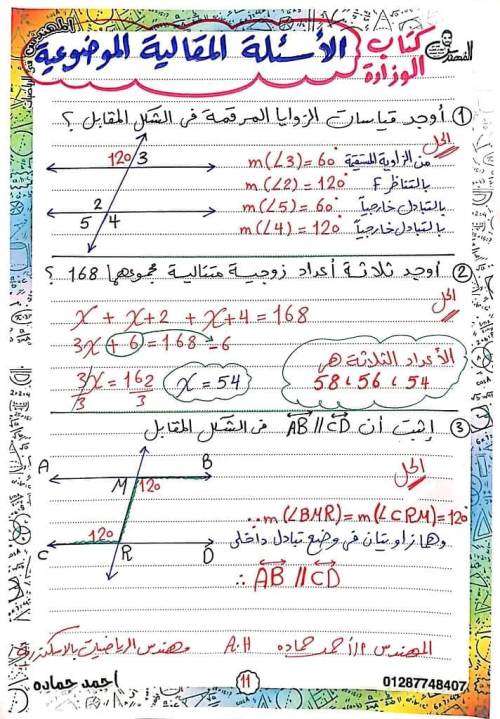 كتاب الوزارة
الأسئلة المقالية الموضوعية
① أوجد قياسات الزوايا المرقمة فى الشكل المقابل ؟
الحل
120° 3
2
5 4
m(∠3) = 60° من الزاوية المستقيمة
m(∠2) = 120° بالتناظر F
m(∠5) = 60° بالتبادل خارجياً
m(∠4) = 120° بالتبادل خارجياً
② أوجد ثلاثة أعداد زوجية متتالية مجموعهما 168 ؟
الحل
x + x+2 + x+4 = 168
3x + 6 = 168 - 6
3x/3 = 162/3
x = 54
الأعداد الثلاثة هى
54 ، 56 ، 58
③ إثبت أن AB // CD فى الشكل المقابل
الحل
A B
M 120°
120°
C R D
∴ m(∠BMR) = m(∠CRM) = 120°
وهما زاويتان فى وضع تبادل داخلى
∴ AB // CD
المهندس أ/ أحمد حماده A.H مهندس الرياضيات بالاسكندرية
احمد حماده
11
01287748407